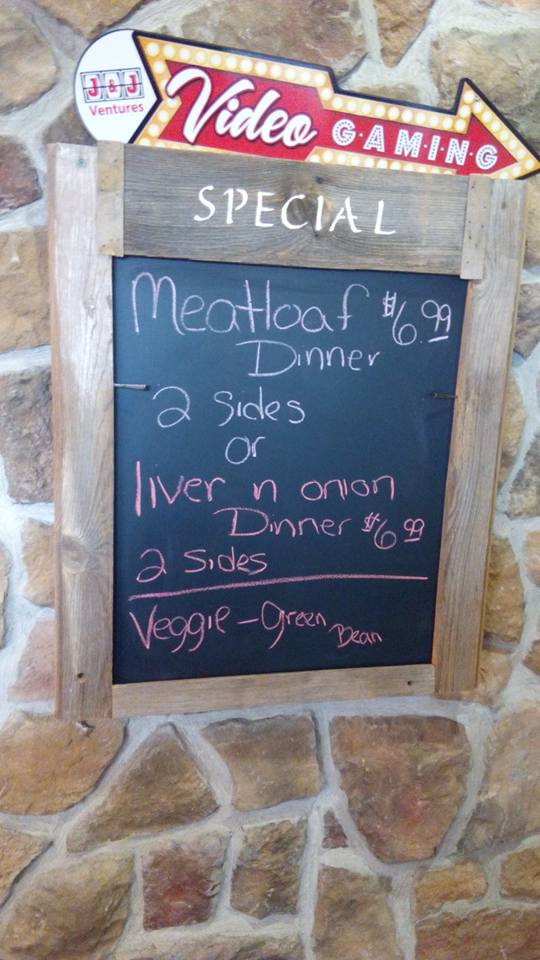 J&J
Ventures
Video GAMING
SPECIAL
Meatloaf $6.99
Dinner
2 Sides
or
liver n onion
Dinner $6.99
2 Sides
Veggie - Green
Bean